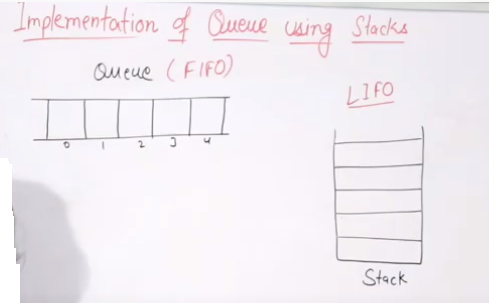 Implementation of Queue using Stacks
Queue (FIFO)
LIFO
0 1 2 3 4
Stack